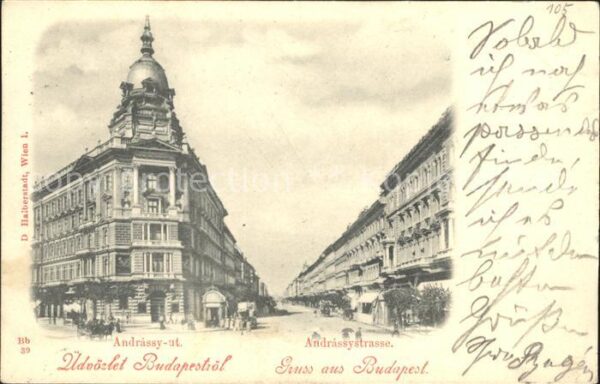 105
D Halberstadt, Wien I.
Bb
39
Andrássy-ut.
Andrássystrasse.
Üdvözlet Budapestről
Gruss aus Budapest.
Sobald
ich noch
etwas
passendes
finde,
sende
ich es
mit den
besten
Grüßen